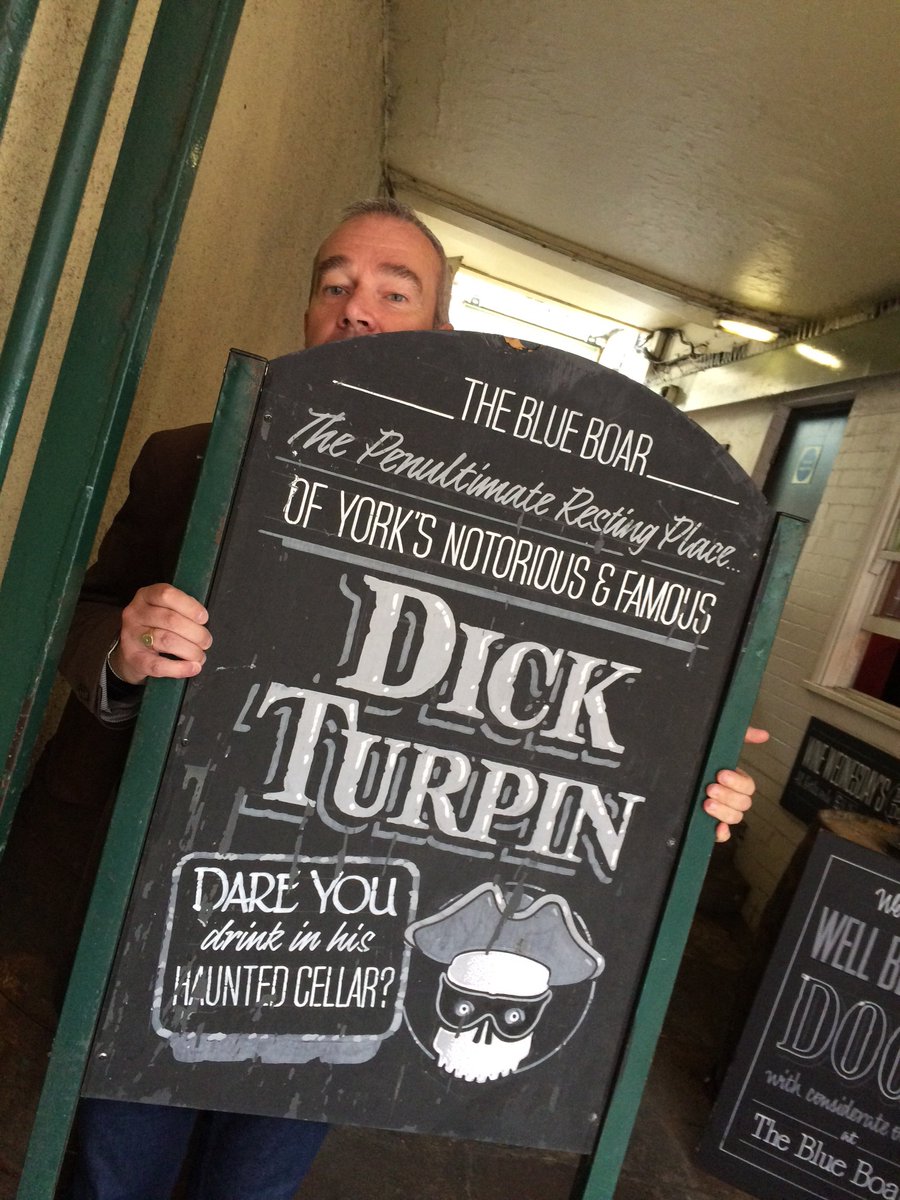 THE BLUE BOAR
The Penultimate Resting Place...
OF YORK'S NOTORIOUS & FAMOUS
DICK
TURPIN
DARE YOU
drink in his
HAUNTED CELLAR?
WELL
with considerate
at
The Blue Boar